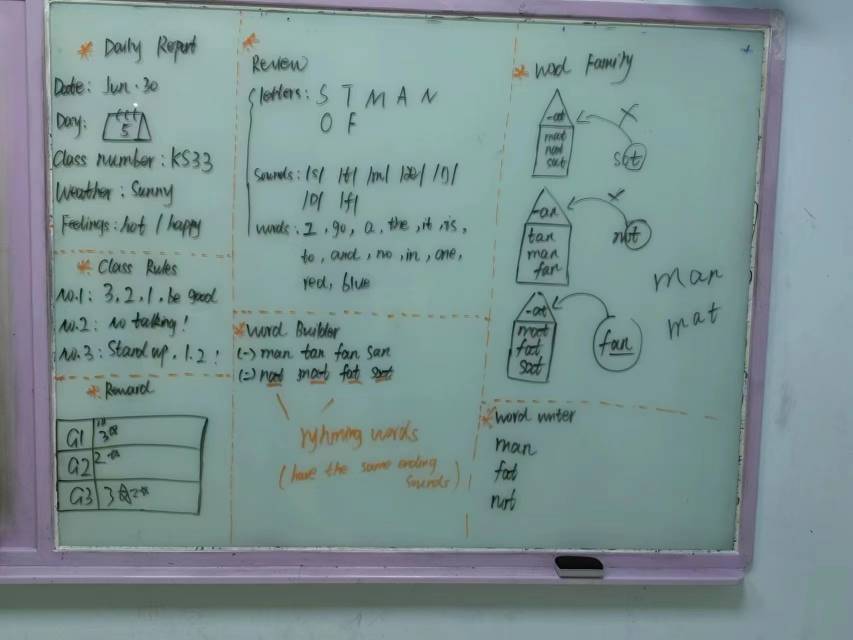 Daily Report
Date: Jun. 30
Day: 5
Class number: KS33
Weather: Sunny
Feelings: hot / happy
Class Rules
No.1: 3, 2, 1, be good
No.2: No talking!
No.3: Stand up, 1, 2!
Reward
G1 3
G2 2
G3 3
Review
letters: S T M A N
O F
Sounds: /s/ /t/ /m/ /æ/ /n/
/ɒ/ /f/
words: I, go, a, the, it, is,
to, and, no, in, one,
red, blue
Word Builder
(一) man tan fan san
(二) nat mat fat sat
ryhming words
(have the same ending
sounds)
Word Family
-at
mat
nat
sat
sot
-an
tan
man
fan
not
-at
mat
fat
sat
fan
man
mat
word writer
man
fat
not